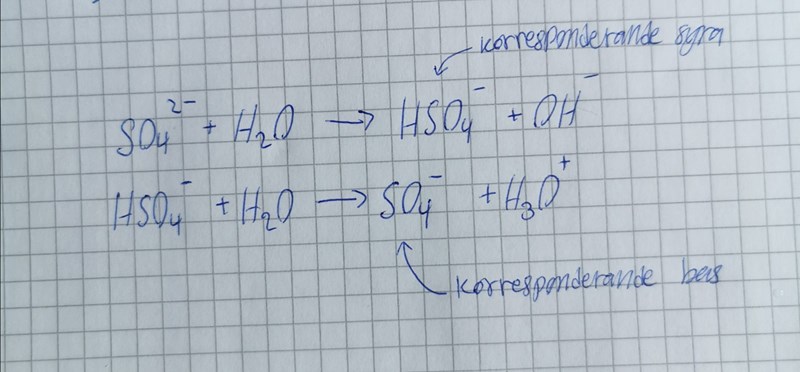 korresponderande syra
SO₄²⁻ + H₂O → HSO₄⁻ + OH⁻
HSO₄⁻ + H₂O → SO₄⁻ + H₃O⁺
korresponderande bas